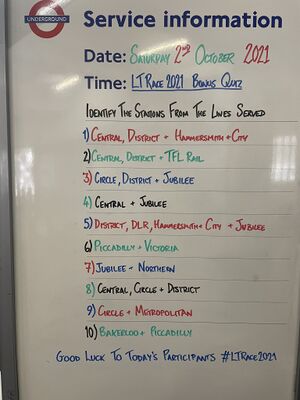 UNDERGROUND
Service information
Date: SATURDAY 2ND OCTOBER 2021
Time: LT RACE 2021 BONUS QUIZ
IDENTIFY THE STATIONS FROM THE LINES SERVED
1) CENTRAL, DISTRICT + HAMMERSMITH + CITY
2) CENTRAL, DISTRICT + TFL RAIL
3) CIRCLE, DISTRICT + JUBILEE
4) CENTRAL + JUBILEE
5) DISTRICT, DLR, HAMMERSMITH + CITY + JUBILEE
6) PICCADILLY + VICTORIA
7) JUBILEE + NORTHERN
8) CENTRAL, CIRCLE + DISTRICT
9) CIRCLE + METROPOLITAN
10) BAKERLOO + PICCADILLY
GOOD LUCK TO TODAY'S PARTICIPANTS #LTRACE2021